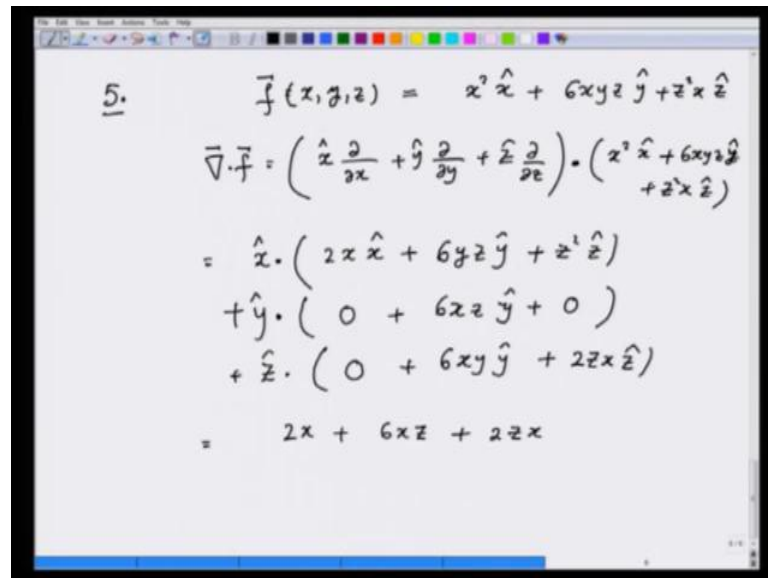 File Edit View Insert Actions Tools Help
5. f⃗ (x, y, z) = x² x̂ + 6xyz ŷ + z²x ẑ
∇⃗.f⃗ = ( x̂ ∂/∂x + ŷ ∂/∂y + ẑ ∂/∂z ) • ( x² x̂ + 6xyz ŷ
+ z²x ẑ )
= x̂ • ( 2x x̂ + 6yz ŷ + z² ẑ )
+ ŷ • ( 0 + 6xz ŷ + 0 )
+ ẑ . ( 0 + 6xy ŷ + 2zx ẑ )
= 2x + 6xz + 2zx